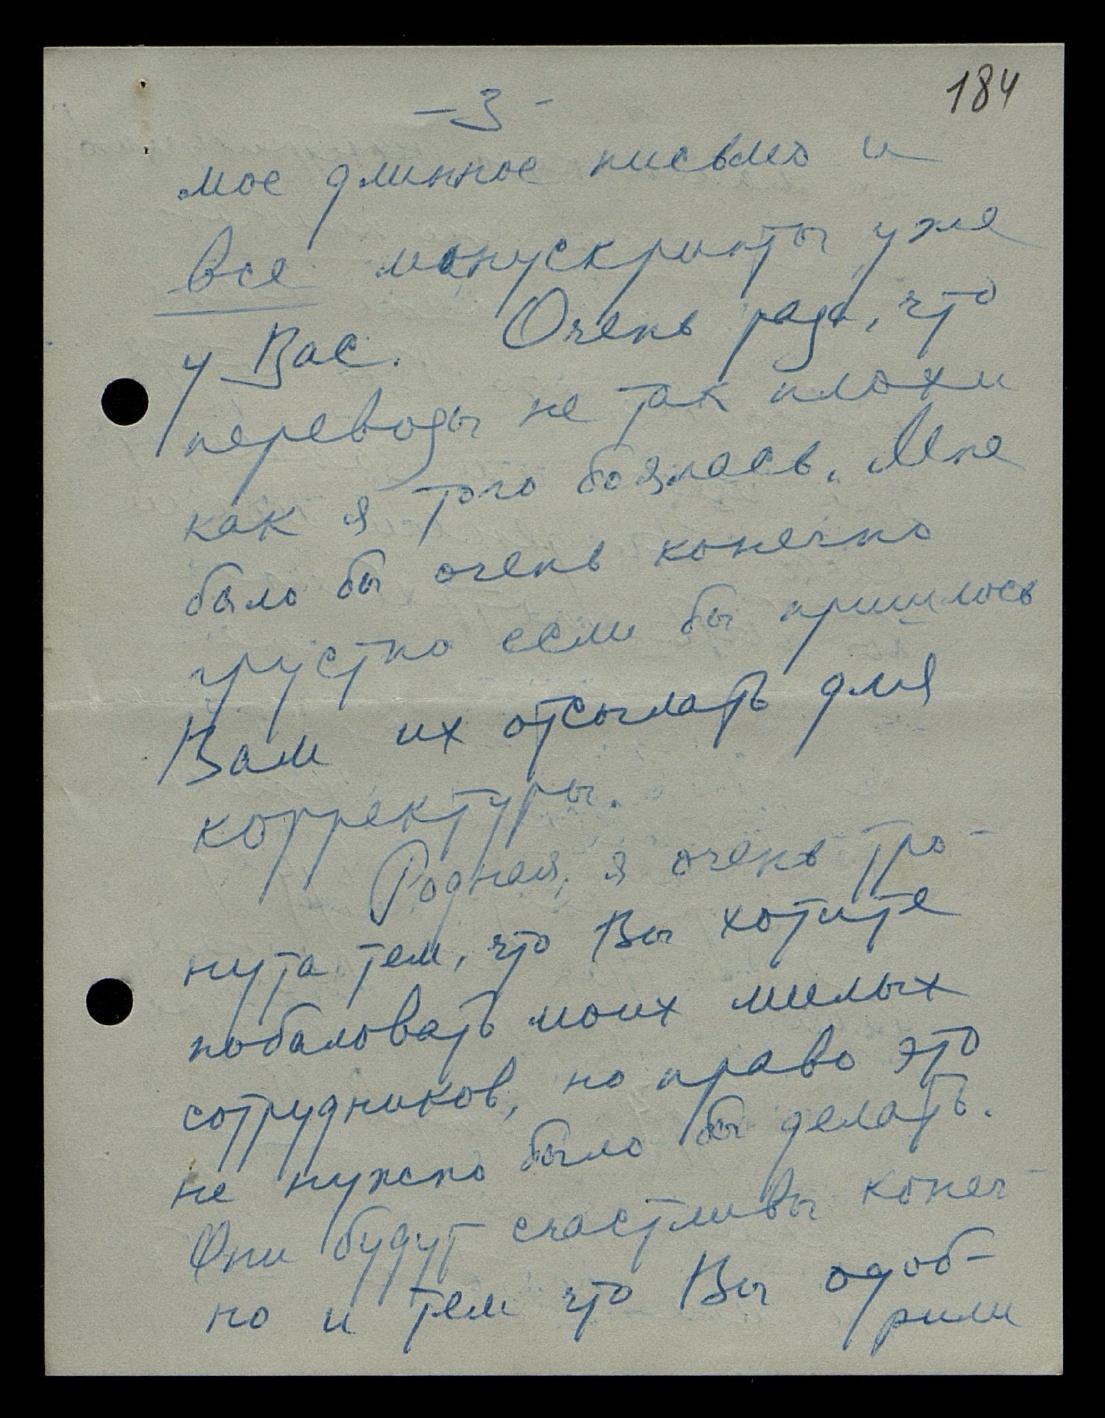 184
-3-
мое длинное письмо и
все манускрипты уже
у Вас. Очень рада, что
переводы не так плохи
как я того боялась. Мне
было бы очень конечно
грустно если бы пришлось
Вам их отсылать для
корректуры.
Родная, я очень тро-
нута тем, что Вы хотите
побаловать моих милых
сотрудников, но право это
не нужно было бы делать.
Они будут счастливы конеч-
но и тем что Вы одоб-
рили